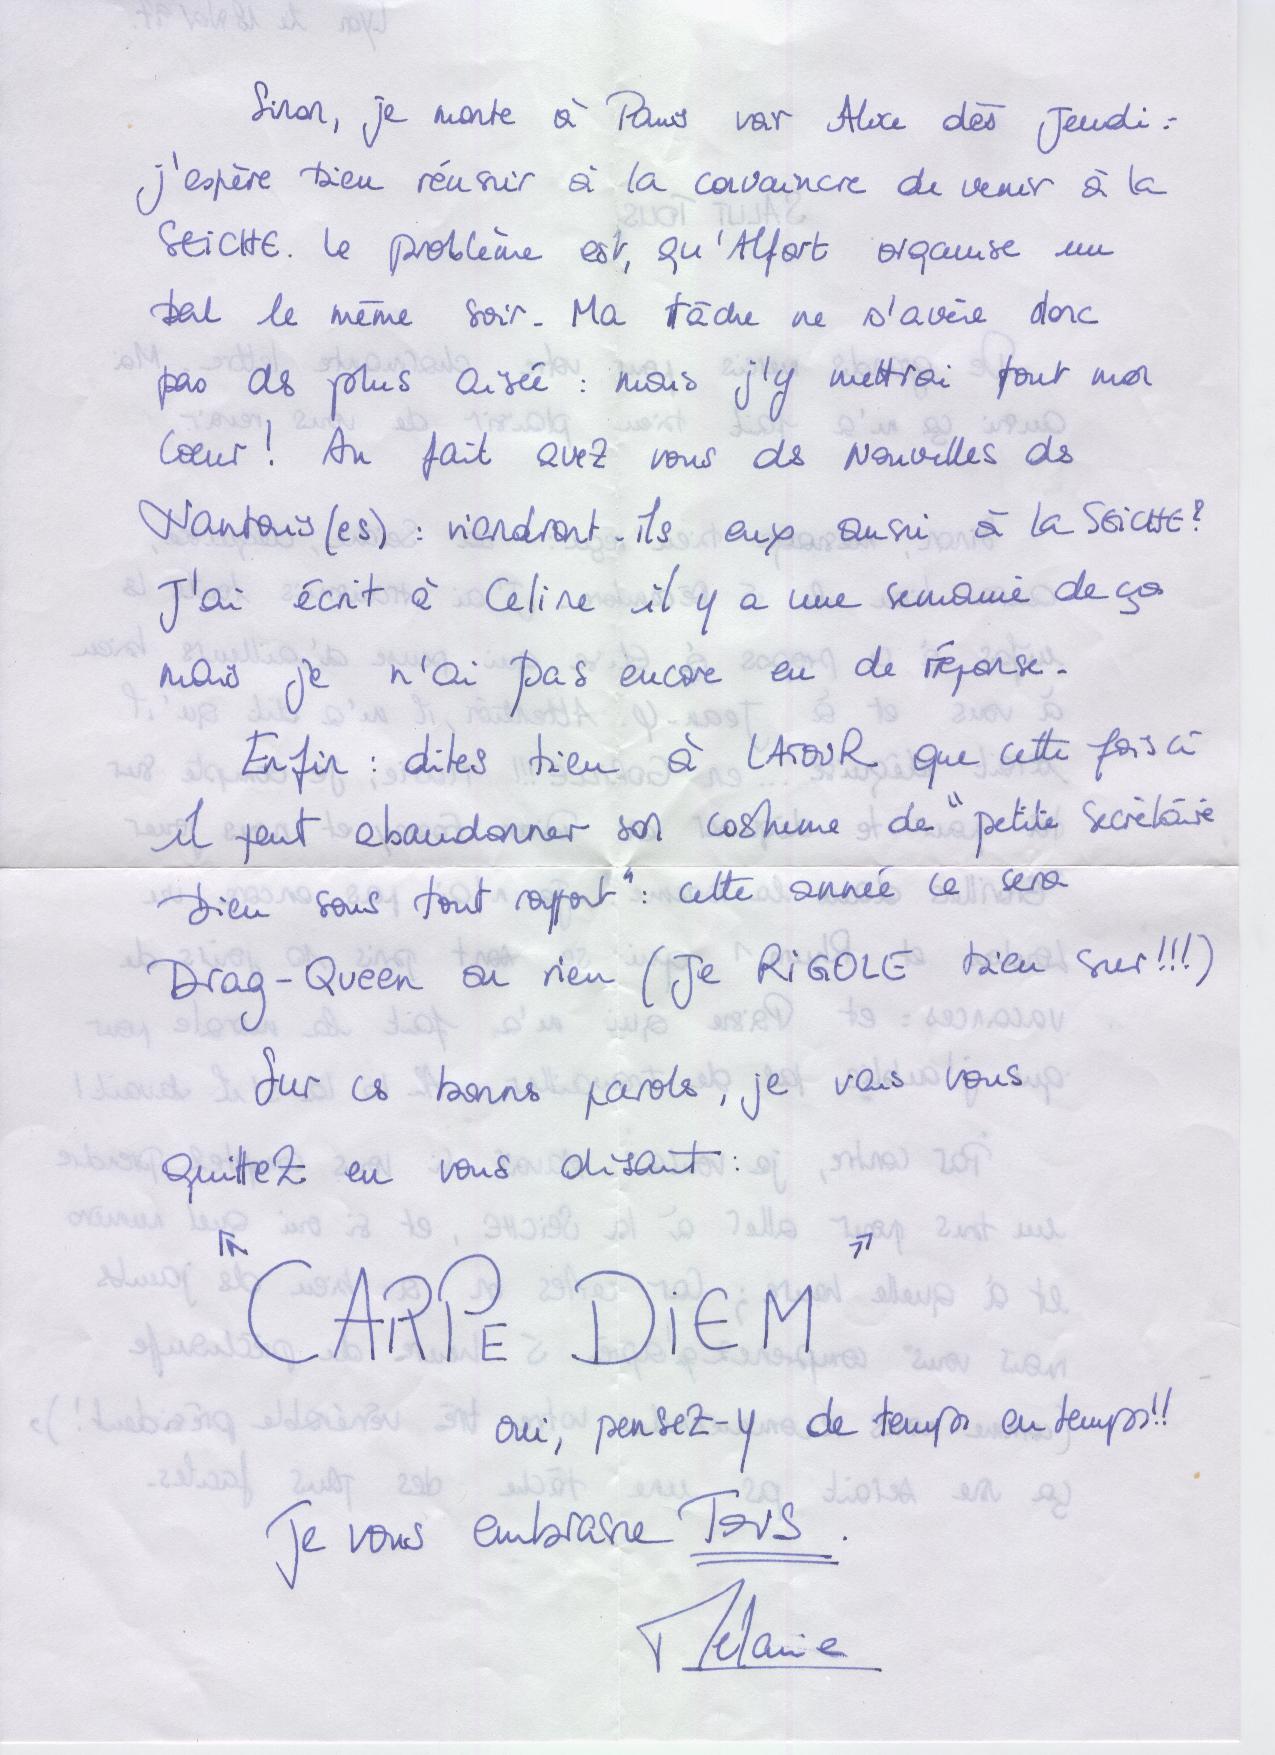 Sinon, je monte à Paris voir Alice dès jeudi :
j'espère bien réussir à la convaincre de venir à la
SEICHE. Le problème est, qu'Alfort organise un
bal le même soir. Ma tâche ne s'avère donc
pas ds plus aisée : mais j'y mettrai tout mon
coeur ! Au fait avez vous ds nouvelles ds
Nantais(es) : viendront-ils eux aussi à la SEICHE ?
J'ai écrit à Celine il y a une semaine de ça
mais je n'ai pas encore eu de réponse.
Enfin : dites bien à LATOUR que cette fois ci
il peut abandonner son costume de "petite secrétaire
bien sous tout rapport" : cette année ce sera
Drag-Queen ou rien (je RIGOLE bien sur !!!)
Sur cs bonns parols, je vais vous
quittez en vous disant :
" CARPE DIEM "
oui, pensez-y de temps en temps !!
Je vous embrasse Tous.
Mélanie